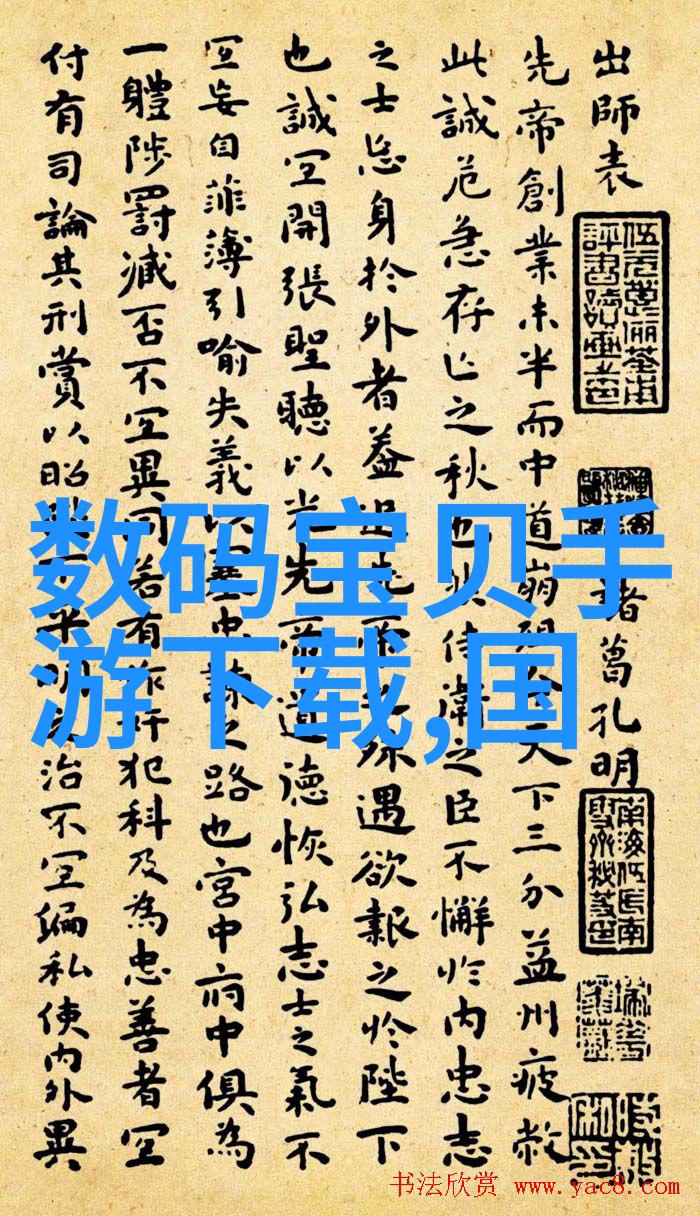 出師表
諸葛孔明
先帝創業未半而中道崩殂今天下三分益州疲敝
此誠危急存亡之秋也然侍衛之臣不懈於内忠志
之士忘身於外者蓋追先帝之殊遇欲報之於陛下
也誠宜開張聖聽以光先帝遺德恢弘志士之氣不
宜妄自菲薄引喻失義以塞忠諫之路也宮中府中俱為
一體陟罰臧否不宜異同若有作奸犯科及為忠善者宜
付有司論其刑賞以昭陛下平明之治不宜偏私使内外異
数码宝贝手
游下载,国
书法欣赏 www.yac8.com